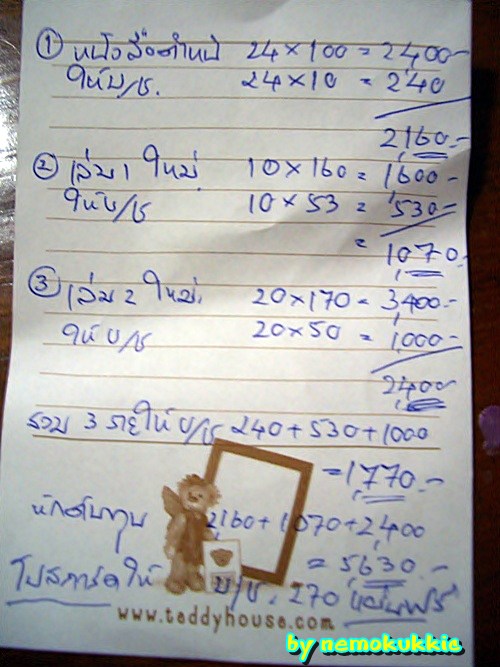 ① หนังสือตำหนิ 24 × 100 = 2,400.-
ให้บ/ช. 24 × 10 = 240
2,160.-
② เล่ม 1 ใหม่ 10 × 160 = 1,600.-
ให้บ/ช 10 × 53 = 530.-
= 1,070.-
③ เล่ม 2 ใหม่. 20 × 170 = 3,400.-
ให้ บ/ช 20 × 50 = 1,000.-
2,400.-
รวม 3 รายให้ บ/ช 240 + 530 + 1000
= 1,770.-
หักต้นทุน 2,160 + 1,070 + 2,400
= 5,630.-
โปสการ์ดให้ บ/ช. 270 แผ่นฟรี
www.teddyhouse.com
by nemokukkie